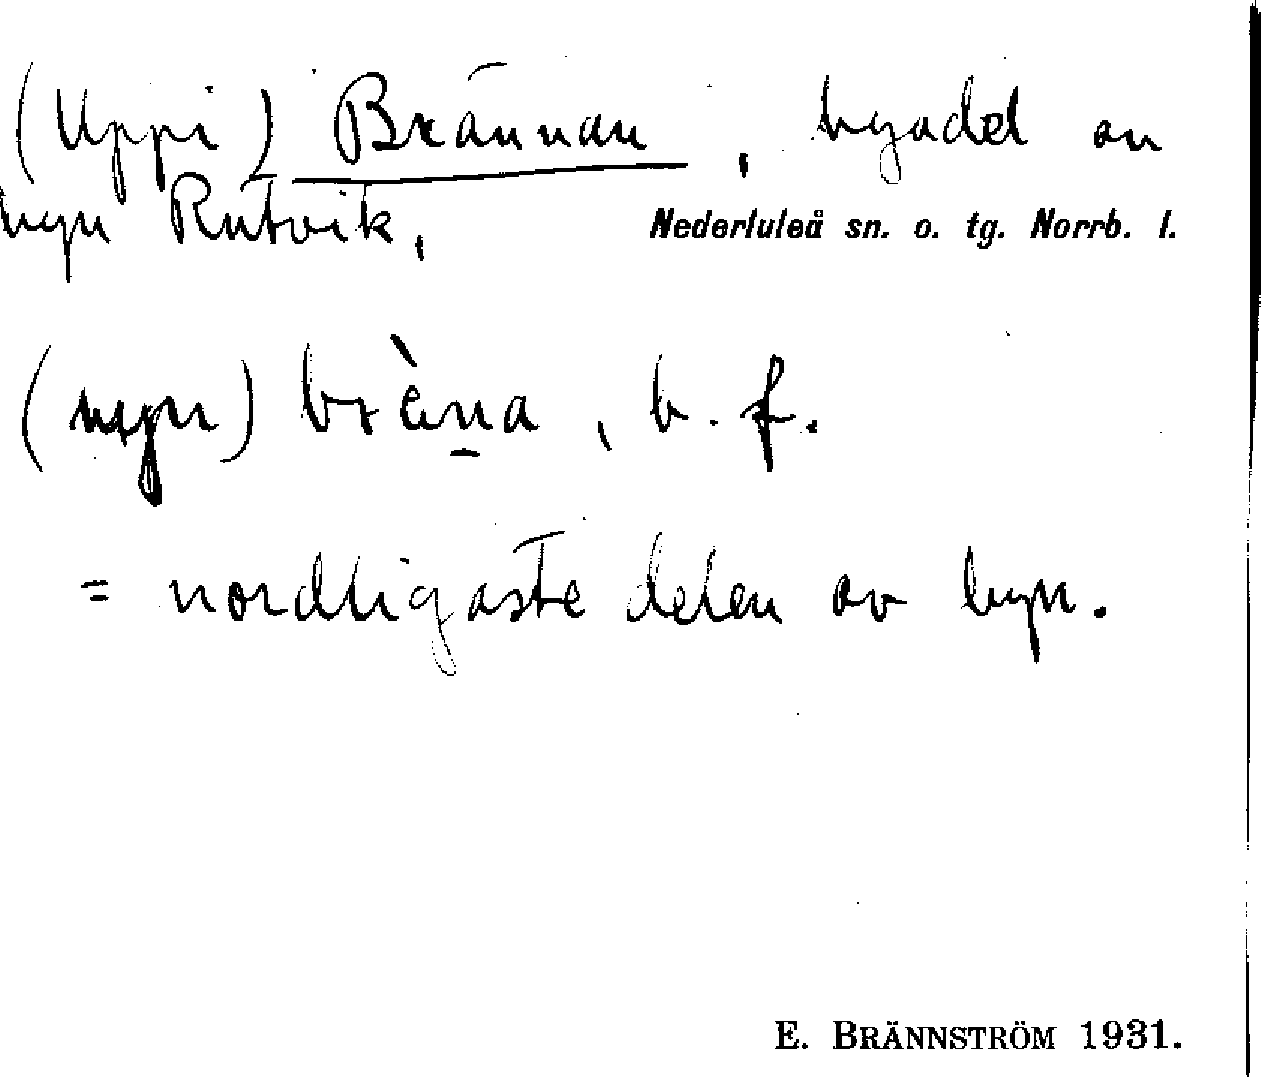 (Uppi) Brännan, bydel av
byn Rutvik, Nederluleå sn. o. tg. Norrb. l.
(upi) brèna, b. f.
= nordligaste delen av byn.
E. BRÄNNSTRÖM 1931.